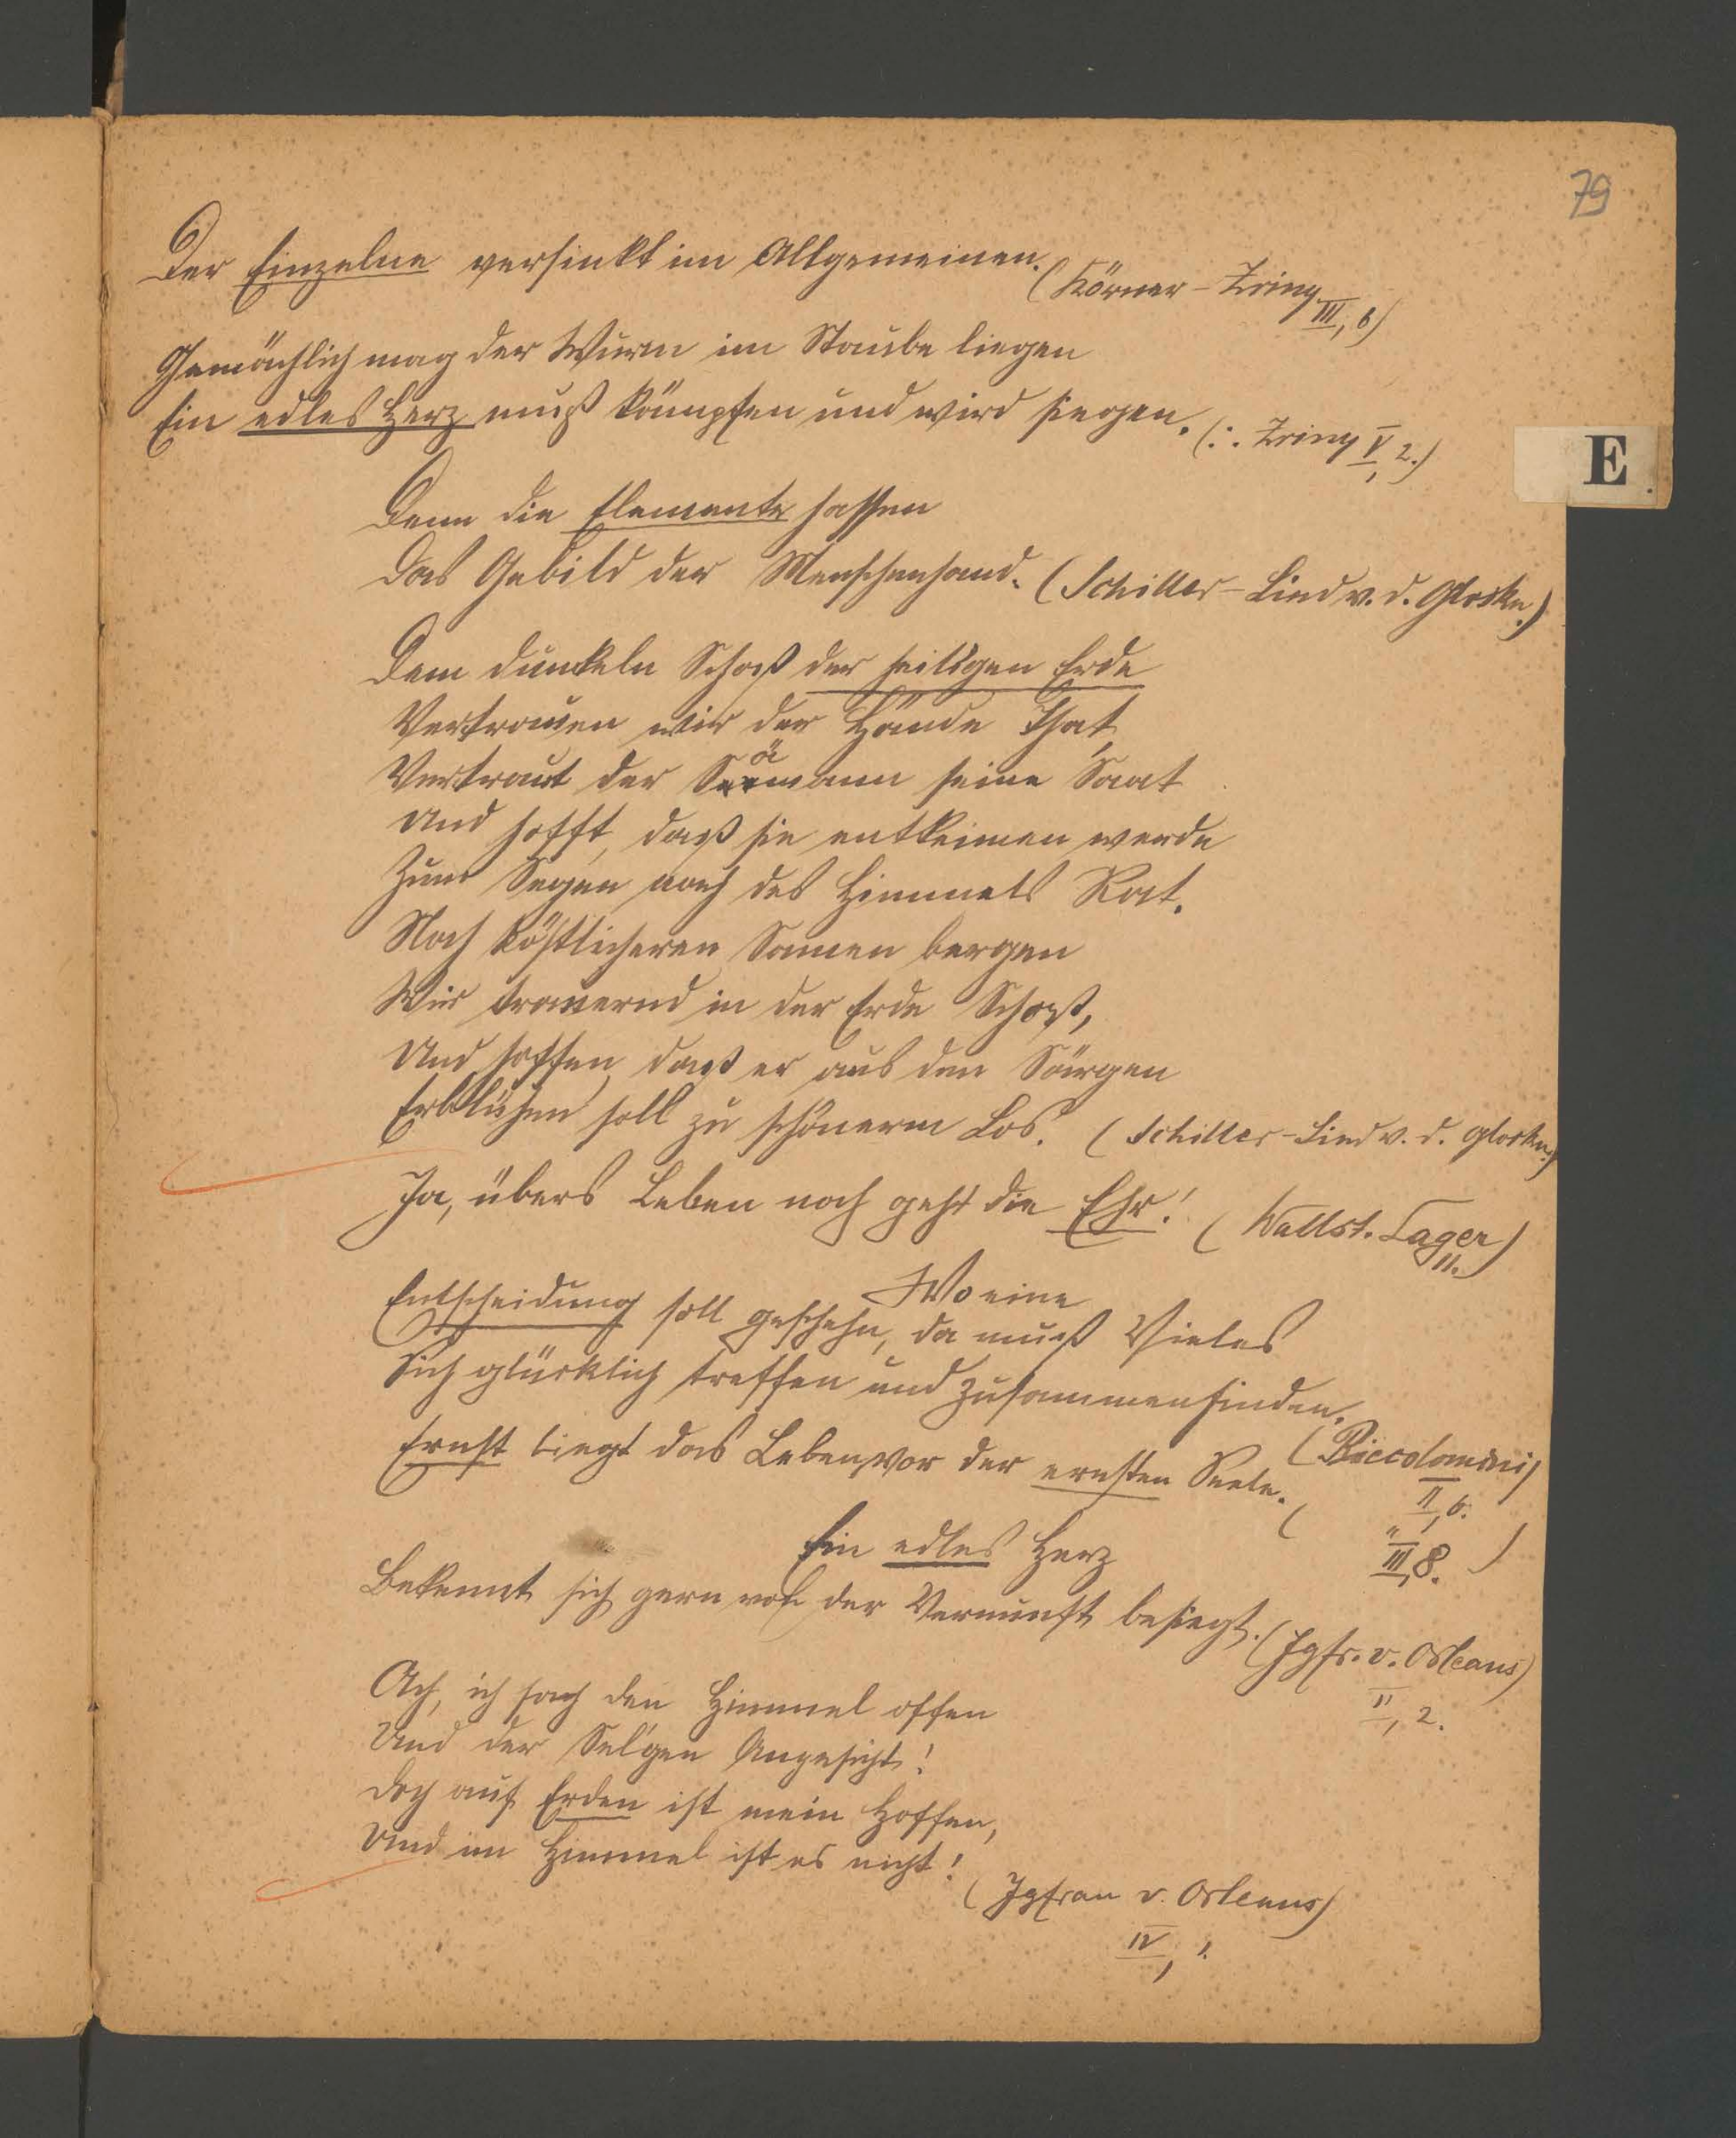 79
Der Einzelne versinkt im Allgemeinen.
(Körner-Zriny III, 6)
Gemächlich mag der Wurm im Staube liegen
Ein edles Herz muß kämpfen und wird siegen. (:. Zriny V, 2.)
E
Denn die Elemente hassen
Das Gebild der Menschenhand. (Schiller-Lied v. d. Glocke.)
Dem dunkeln Schoß der heilgen Erde
Vertrauen wir der Hände That,
Vertraut der Sämann seine Saat
Und hofft, daß sie entkeimen werde
Zum Segen nach des Himmels Rat.
Noch köstlicheren Samen bergen
Wir trauernd in der Erde Schoß,
Und hoffen, daß er aus den Särgen
Erblühen soll zu schönerm Los. (Schiller-Lied v. d. Glocke.)
Ja, übers Leben noch geht die Ehr! (Wallst. Lager)
11.
Wo eine
Entscheidung soll geschehn, da muß Vieles
Sich glücklich treffen und zusammenfinden.
(Piccolomini)
II, 6.
Ernst liegt das Leben vor der ernsten Seele.
( " III, 8. )
Ein edles Herz
Bekennt sich gern von der Vernunft besiegt. (Jgfr. v. Orleans)
II, 2.
Ach, ich sah den Himmel offen
Und der Sel'gen Angesicht!
Doch auf Erden ist mein Hoffen,
Und im Himmel ist es nicht!
(Jgfrau v. Orleans)
IV, 1.